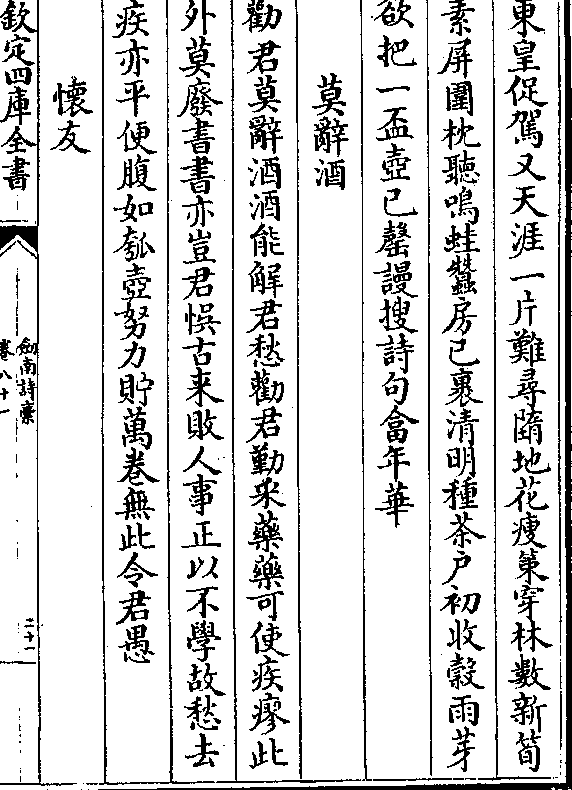 東皇促駕又天涯一片難尋隨地花瘦䇿穿林數新筍
素屏圍枕聽鳴蛙蠶房已裹清明種茶戶初收穀雨芽
欲把一盃壺已罄謾搜詩句畣年華
莫辭酒
勸君莫辭酒酒能解君愁勸君勤采藥藥可使疾瘳此
外莫廢書書亦豈君悞古来敗人事正以不學故愁去
疾亦平便腹如瓠壺努力貯萬卷無此令君愚
懷友
欽定四庫全書
劍南詩槀
卷八十一
二十一